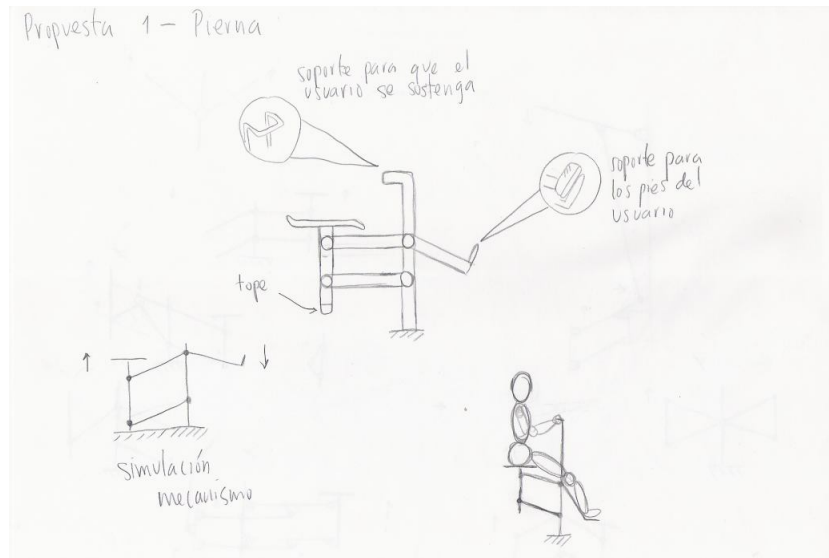 Propuesta 1 - Pierna
soporte para que el
usuario se sostenga
soporte para
los pies del
usuario
tope
simulación
mecanismo